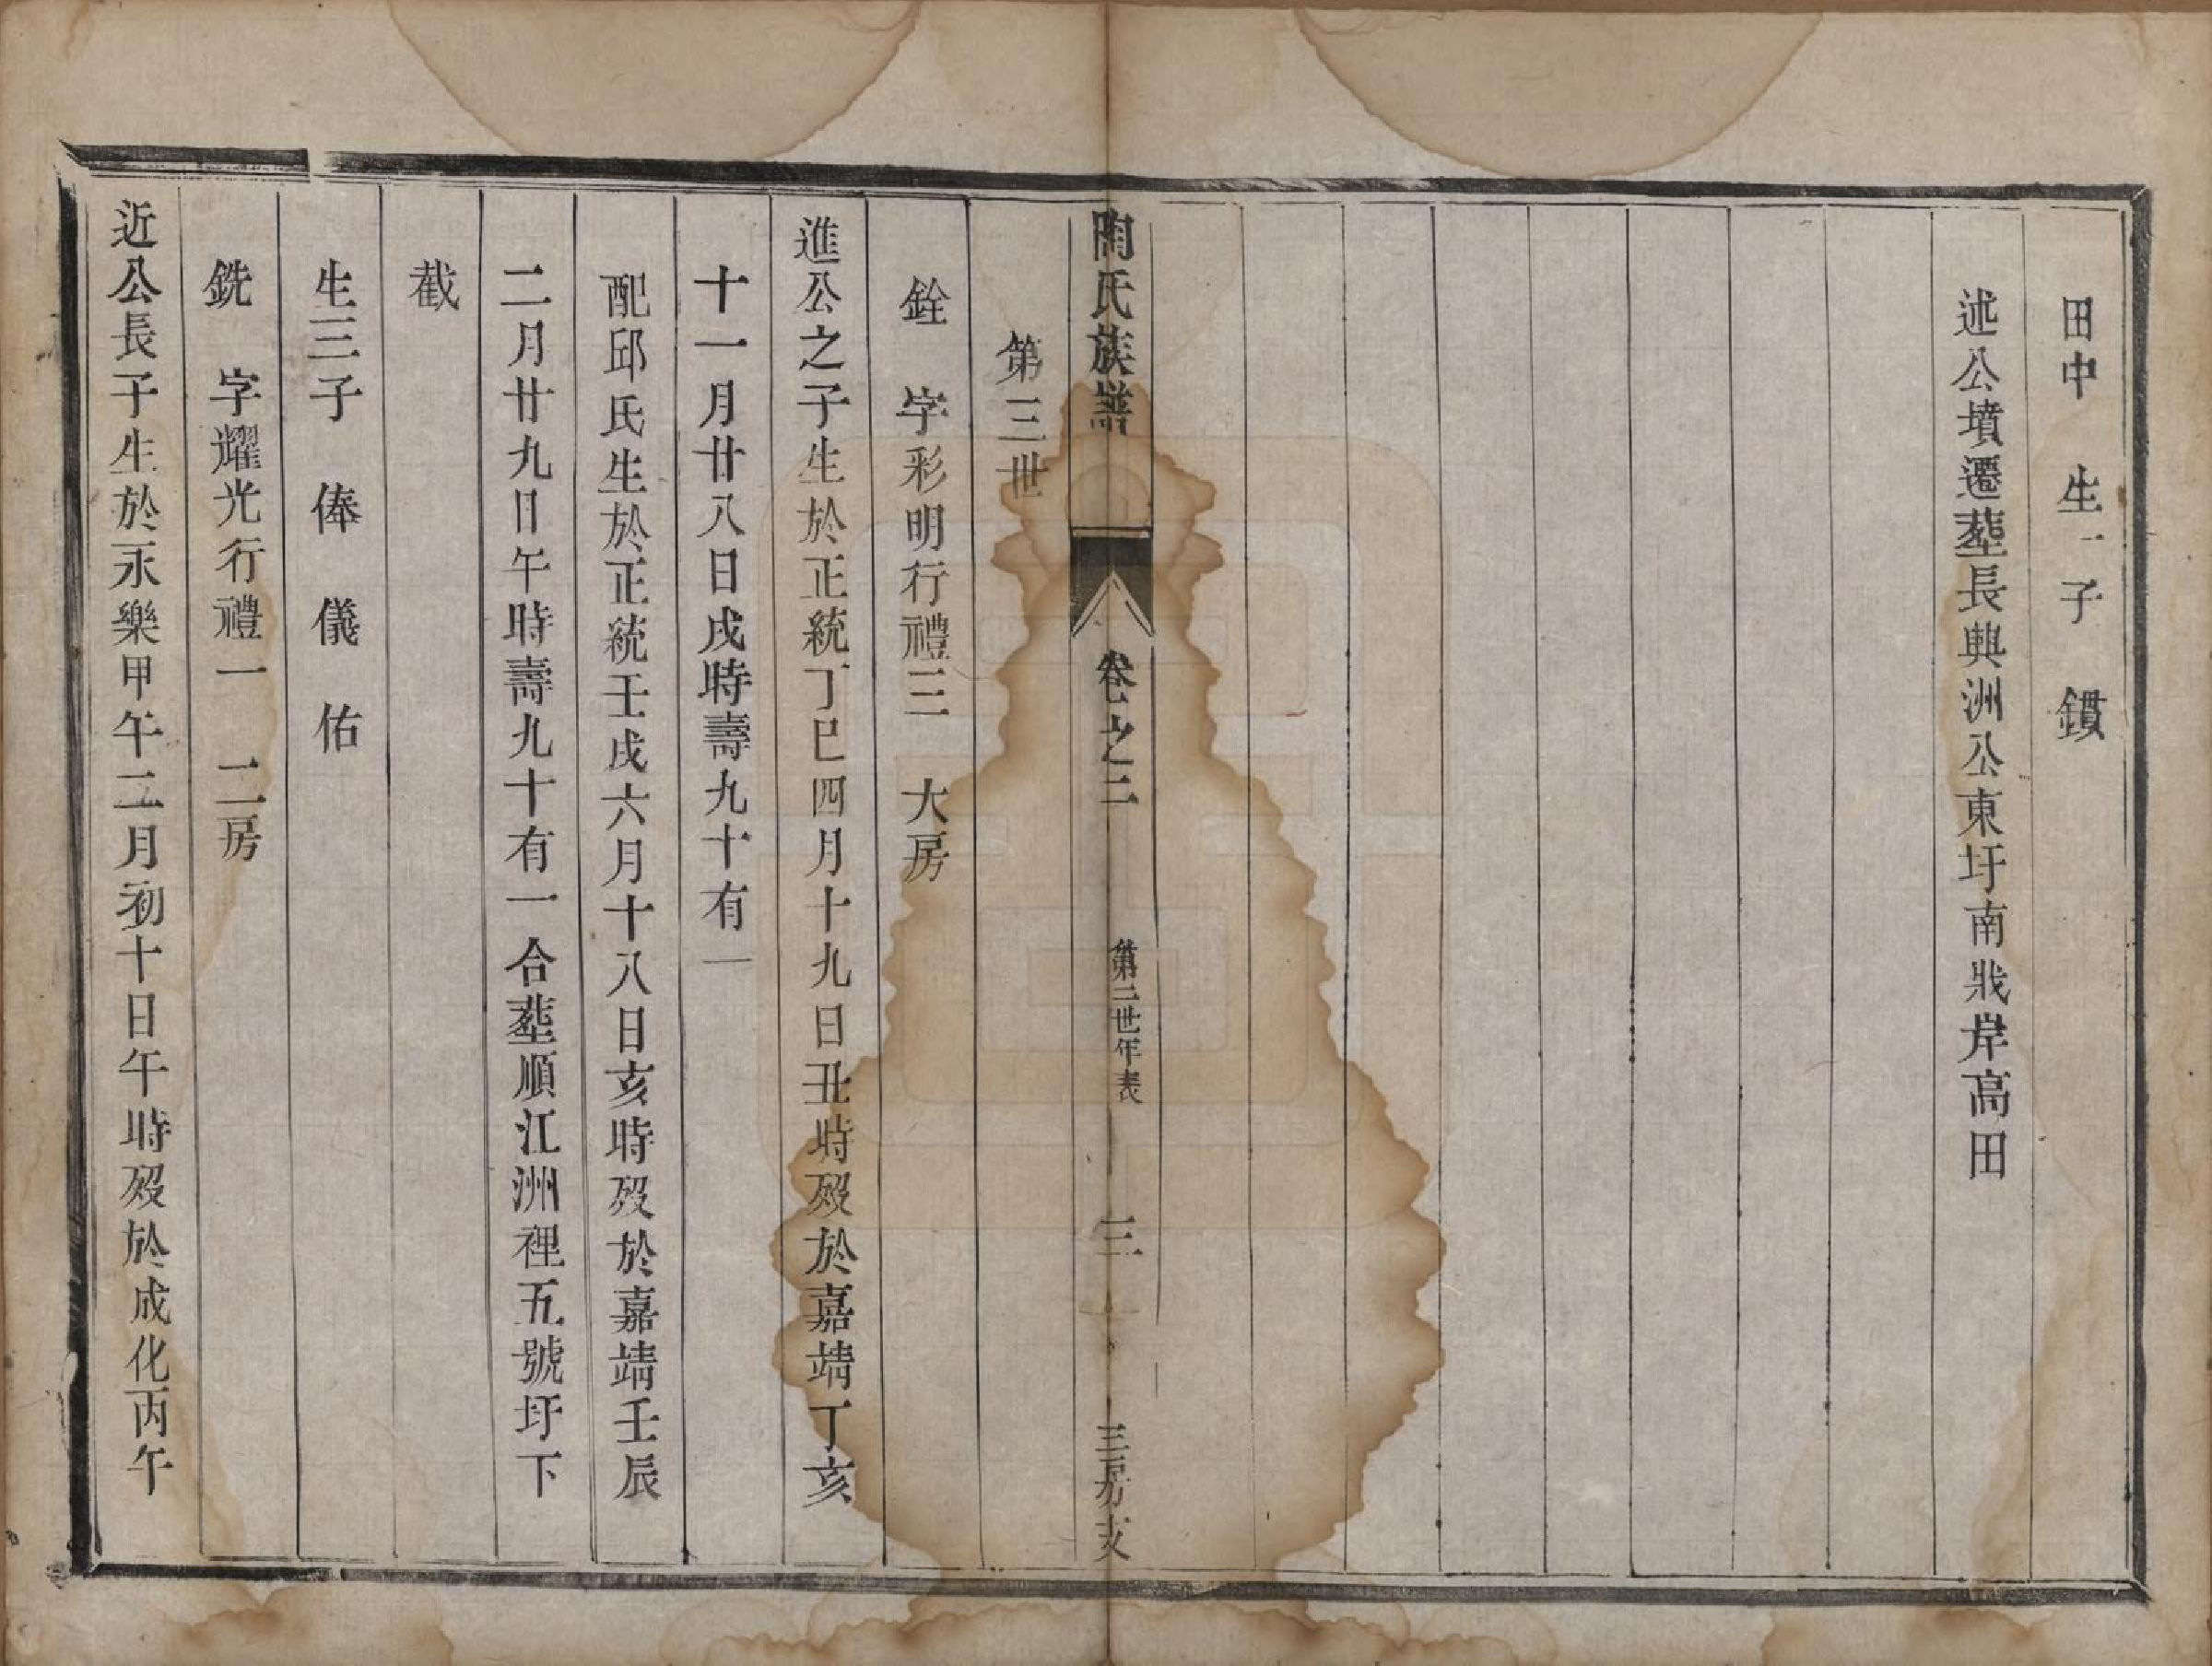 田中　生一子　鑕
述公墳遷塟長興洲公東圩南戕岸高田
陶氏族譜　卷之二　第三世年表　三　三房支
第三世
銓　字彩明行禮三　大房
進公之子生於正統丁巳四月十九日丑時歿於嘉靖丁亥
十一月廿八日戌時壽九十有一
配邱氏生於正統壬戌六月十八日亥時歿於嘉靖壬辰
二月廿九日午時壽九十有一合塟順江洲裡五號圩下
截
生三子　俸　儀　佑
銑　字耀光行禮一　二房
近公長子生於永樂甲午二月初十日午時歿於成化丙午